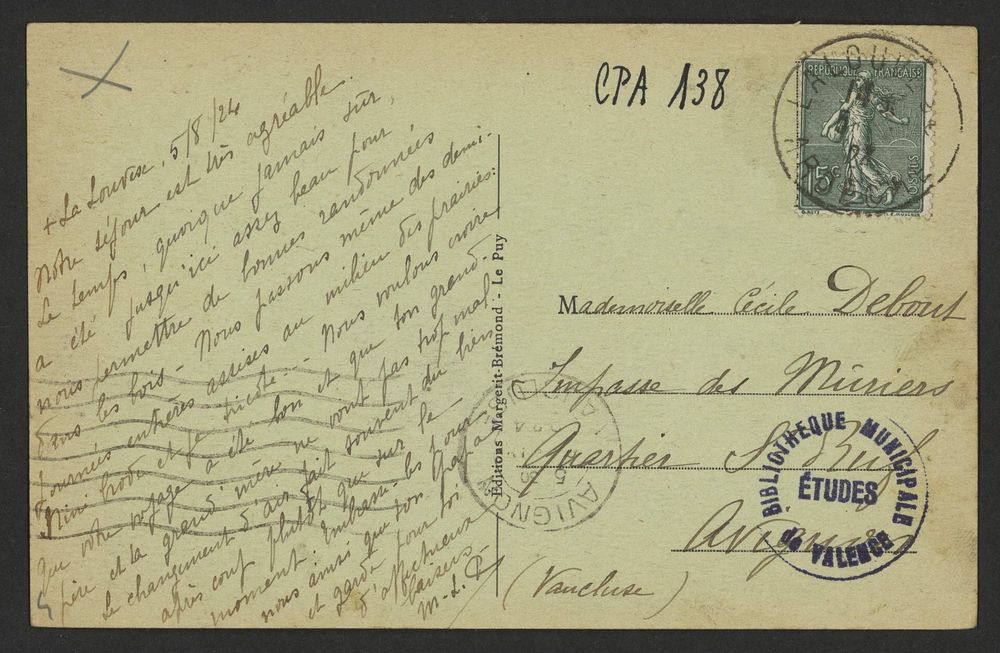 + La Louvesc, 5/8/24
Notre séjour est très agréable
Le temps, quoique jamais sûr,
a été jusqu'ici assez beau pour
nous permettre de bonnes randonnées
dans les bois - Nous passons même des demi-
journées entières assises au milieu des prairies.
Nini brode et je tricote. - Nous voulons croire
que votre voyage a été bon et que ton grand-
père et ta grand'mère ne vont pas trop mal.
Le changement d'air fait souvent du bien
après coup plutôt que sur le
moment. Embrasse-les pour
nous ainsi que ton Papa
et garde pour toi
d'affectueux
baisers
M-L. P
Editions Margerit-Brémond - Le Puy
CPA 138
RÉPUBLIQUE FRANÇAISE
15c
POSTES
ARDÈCHE
Mademoiselle Cécile Debout
Impasse des Mûriers
Quartier St Ruf
Avignon
(Vaucluse)
AVIGNON
BIBLIOTHEQUE MUNICIPALE
ÉTUDES
de VALENCE